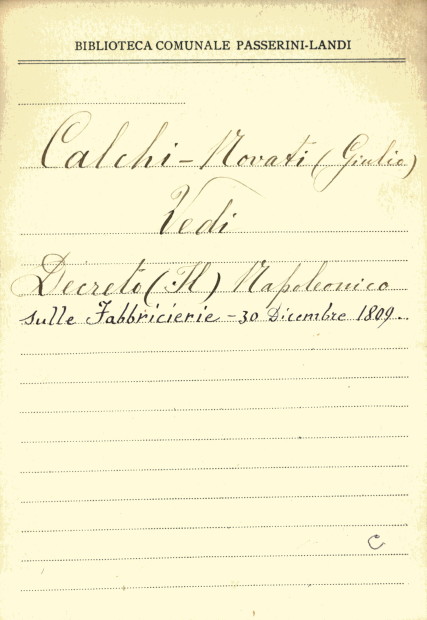 BIBLIOTECA COMUNALE PASSERINI-LANDI
Calchi-Novati (Giulio)
Vedi
Decreto (:Il) Napoleonico
sulle Fabbricierie - 30 Dicembre 1809.
C